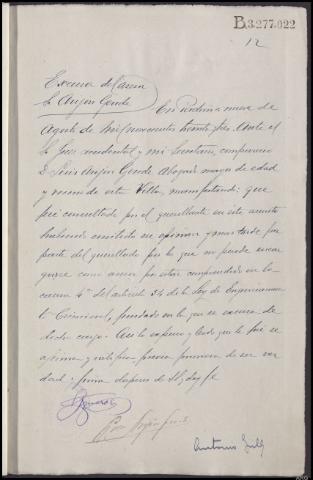 B.3.277.022
12
Excusa del asesor
D. Angin Gende
En Redondela a nueve de
Agosto de mil novecientos treinta y tres. Ante el
Sr. Juez accidental y mi Secretario, comparece
D. Luis Angin Gende Abogado mayor de edad
y vecino de esta Villa, manifestando: que
fué consultado por el querellante en este asunto
habiendo emitido su opinion y mas tarde por
parte del querellado por lo que no puede encar
garse como asesor por estar comprendido en la
causa 4ª del articulo 54 de la Ley de Enjuiciamien
to Criminal, fundado en lo que se excusa de
dicho cargo. Asi lo expuso y leido que le fue se
afirma y ratifica previa promesa de ser ver
dad y firma despues de S.S. doy fe
Antonio